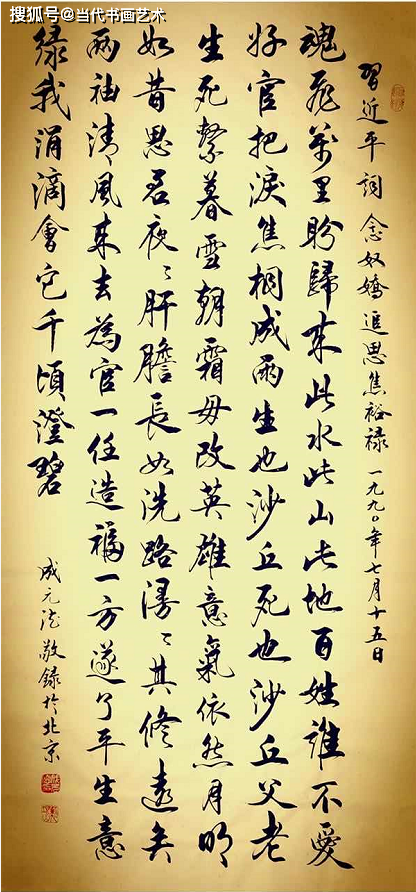 搜狐号@当代书画艺术
習近平詞 念奴嬌 追思焦裕禄 一九九〇年七月十五日
魂飛萬里盼歸來此水此山此地百姓誰不愛
好官把淚焦桐成雨生也沙丘死也沙丘父老
生死繫暮雪朝霜毋改英雄意氣依然月明
如昔思君夜〻肝膽長如洗路漫〻其修遠矣
两袖清風來去為官一任造福一方遂了平生意
绿我涓滴會它千頃澄碧
成元法敬録於北京